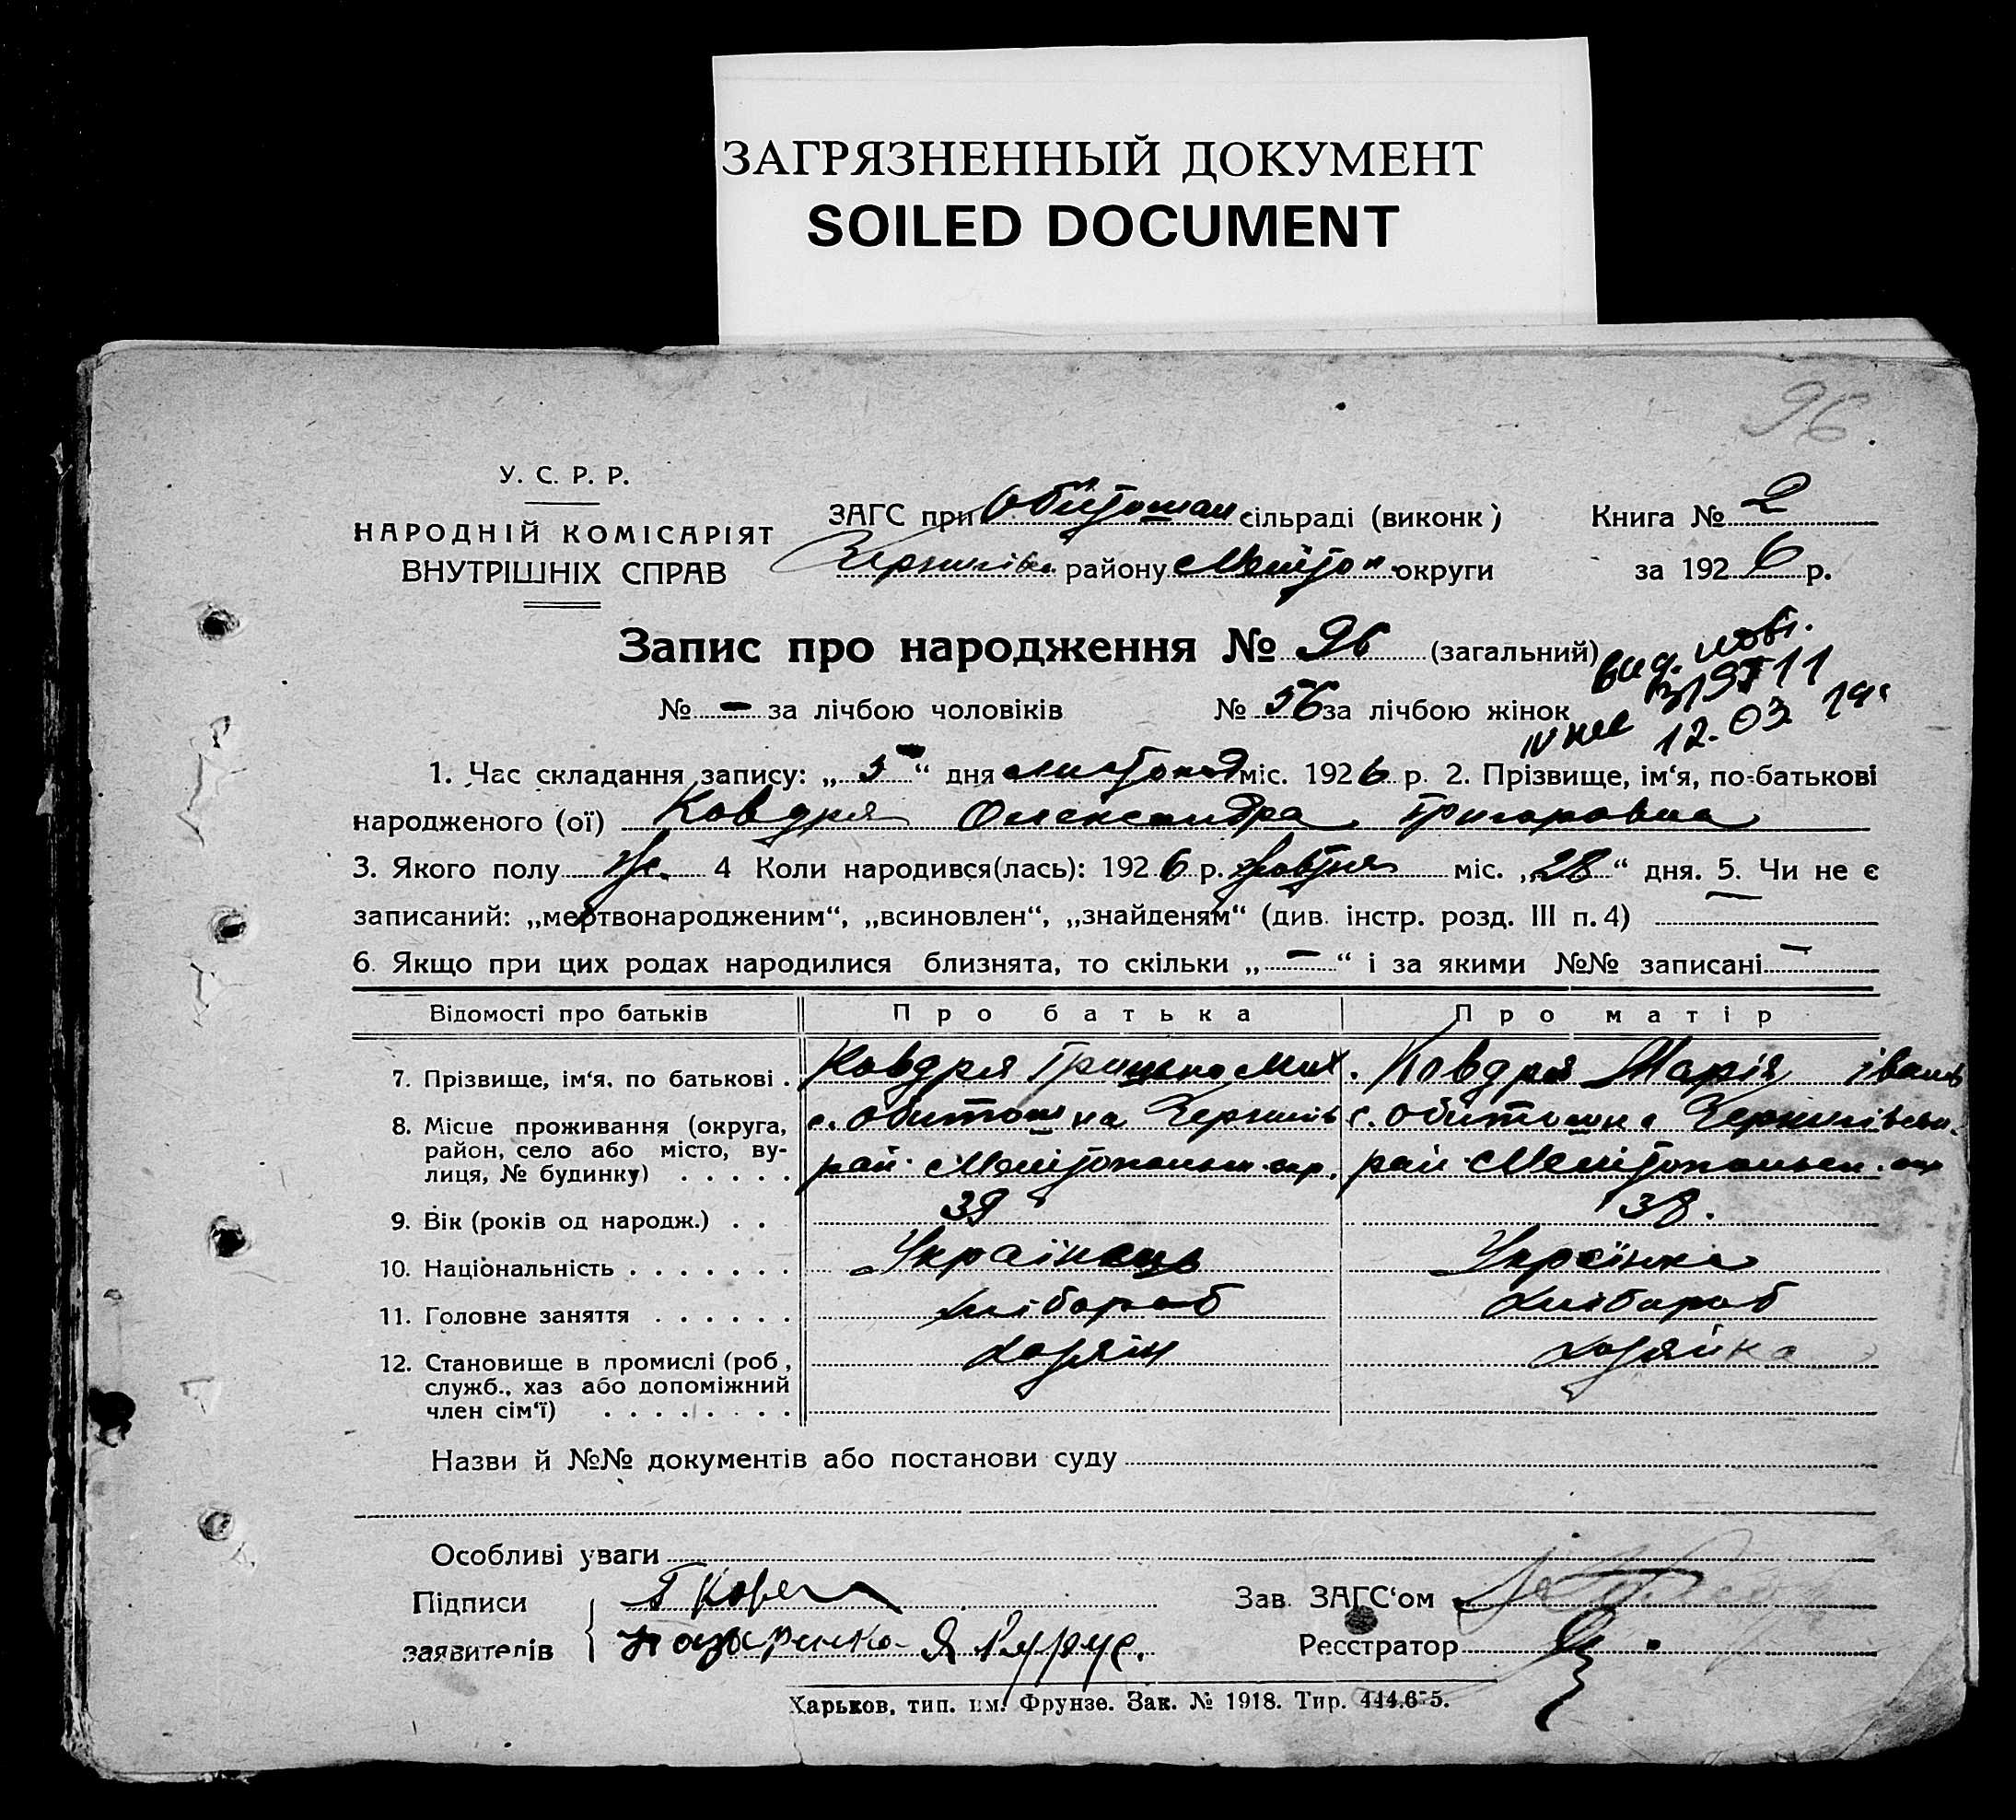 ЗАГРЯЗНЕННЫЙ ДОКУМЕНТ
SOILED DOCUMENT
96.
У. С. Р. Р.
НАРОДНІЙ КОМІСАРІЯТ
ВНУТРІШНІХ СПРАВ
ЗАГС при Обитошан сільраді (виконк)
району Мелітоп. округи
Книга № 2
за 1926 р.
Запис про народження № 96 (загальний)
№ – за лічбою чоловіків № 56 за лічбою жінок
12.03
1. Час складання запису: „5“ дня листопад міс. 1926 р. 2. Прізвище, ім‘я, по-батькові
народженого (ої) Ковдря Олександра Григоровна
3. Якого полу ж. 4 Коли народився(лась): 1926 р. жовтня міс. „28“ дня. 5. Чи не є
записаний: „мертвонародженим“, „всиновлен“, „знайденям“ (див. інстр. розд. III п. 4) —
6. Якщо при цих родах народилися близнята, то скільки „–“ і за якими №№ записані –
Відомості про батьків Про батька Про матір
7. Прізвище, ім‘я, по батькові . Ковдря Грицько Мих. Ковдря Марія Івань
8. Місце проживання (округа, район, село або місто, вулиця, № будинку) . . . . .
с. Обитошна Чернигів с. Обитошна Чернигівськ.
рай. Мелітопольськ. окр. рай. Мелітопольськ. окр
9. Вік (років од народж.) . . 39 38.
10. Національність . . . . . . . Українець Українка
11. Головне заняття . . . . . . хлібороб хлібороб
12. Становище в промислі (роб, служб., хаз або допоміжний член сім‘ї) . . . . . . . . хозяїн хозяйка
Назви й №№ документів або постанови суду
Особливі уваги
Підписи
заявителів
Назаренко
Зав. ЗАГС‘ом
Реєстратор
Харьков, тип. им. Фрунзе. Зак. № 1918. Тир.